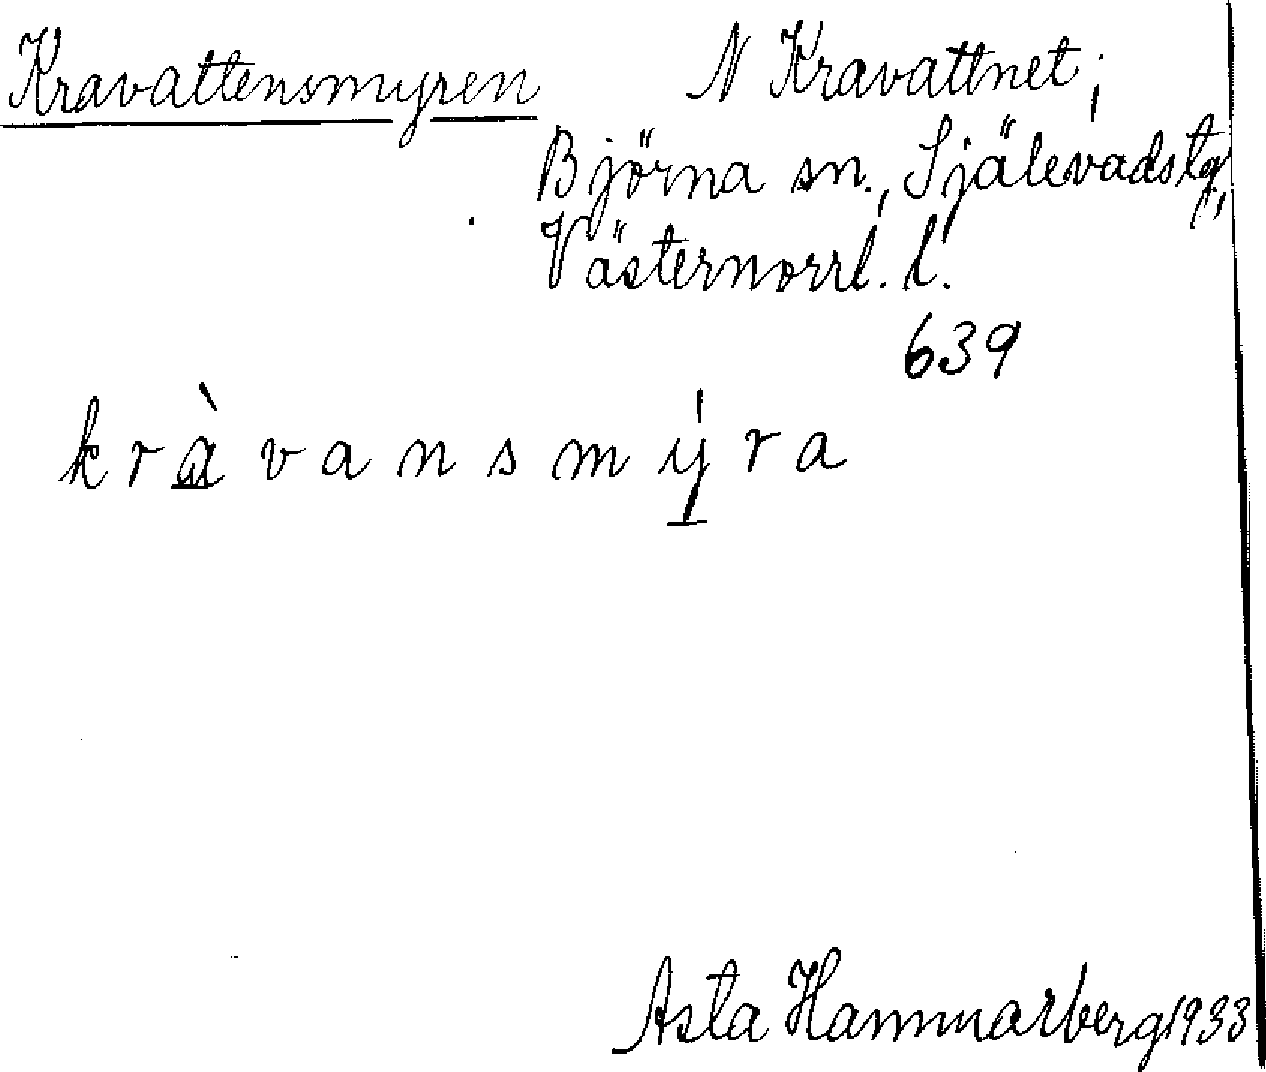 Kravattensmyren N Kravattnet;
Björna sn., Själevads tg,
Västernorrl. l.
639
kràvansmýra
Asta Hammarberg 1933